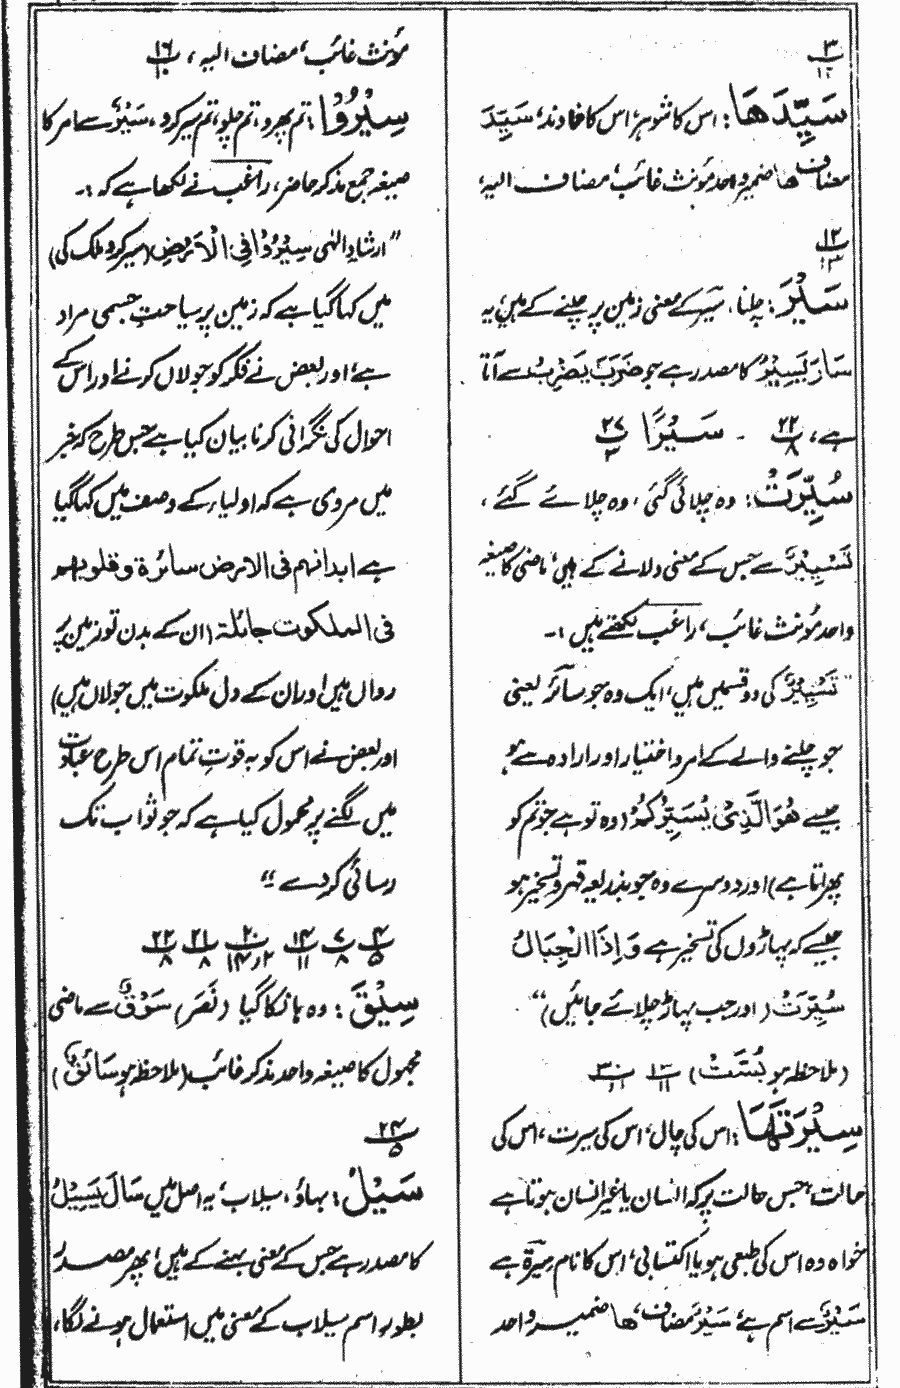 ۳
۱۲
سَیِّدَهَا: اس کا شوہر، اس کا خاوند، سَیِّدَ
مضاف ھا ضمیر واحد مؤنث غائب، مضاف الیہ،
۱۲
۱۳
سَیْرَ: چلنا، سَیْر کے معنی زمین پر چلنے کے ہیں، یہ
سَارَ یَسِیْرُ کا مصدر ہے جو ضَرَبَ یَضْرِبُ سے آتا
ہے، ۲۲/۸ - سَیْرًا ۲۷/۳
سُیِّرَتْ: وہ چلائی گئی، وہ چلائے گئے،
تَسْیِیْرٌ سے جس کے معنی دلانے کے ہیں، ماضی کا صیغہ
واحد مؤنث غائب، راغب لکھتے ہیں :-
"تَسْیِیْرٌ کی دو قسمیں ہیں، ایک وہ جو سائر یعنی
جو چلنے والے کے امر و اختیار اور ارادہ سے ہو
جیسے هُوَ الَّذِیْ یُسَیِّرُکُمْ (وہ تو ہے جو تم کو
پھراتا ہے) اور دوسرے وہ جو بذریعہ قہر و تسخیر ہو
جیسے کہ پہاڑوں کی تسخیر ہے وَاِذَا الْجِبَالُ
سُیِّرَتْ (اور جب پہاڑ چلائے جائیں)"
(ملاحظہ ہو بُسَّتْ) ۱۳/۱۱ ۳۰/۱۱
سِیْرَتَهَا: اس کی چال، اس کی سیرت، اس کی
حالت، جس حالت پر کہ انسان یا غیر انسان ہوتا ہے
خواہ وہ اس کی طبعی ہو یا اکتسابی، اس کا نام سِیْرَة ہے
سَیْرٌ سے اسم ہے، سَیْرَ مضاف، ھا ضمیر واحد
مؤنث غائب، مضاف الیہ، ۱۶/۱۰
سِیْرُوْا: تم پھرو، تم چلو، تم سیر کرو، سَیْرٌ سے امر کا
صیغہ جمع مذکر حاضر، راغب نے لکھا ہے کہ :-
"ارشادِ الٰہی سِیْرُوْا فِی الْاَرْضِ (سیر کرو ملک کی)
میں کہا گیا ہے کہ زمین پر سیاحتِ جسمی مراد
ہے، اور بعض نے فکر کو جولاں کرنے اور اس کے
احوال کی نگرانی کرنا بیان کیا ہے جس طرح کہ خبر
میں مروی ہے کہ اولیاء کے وصف میں کہا گیا
ہے ابدانہم فی الارض سائرة وقلوبہم
فی الملکوت جائلة (ان کے بدن تو زمین پر
رواں ہیں اور ان کے دل ملکوت میں جولاں ہیں)
اور بعض نے اس کو بہ قوتِ تمام اس طرح عبادت
میں لگنے پر محمول کیا ہے کہ جو ثواب تک
رسائی کر دے"
۴/۵ ۷/۸ ۱۴/۱۱ ۲۰/۱۴٫۲ ۲۱/۸ ۲۲/۸
سِیْقَ: وہ ہانکا گیا (نَصَرَ) سَوْقٌ سے ماضی
مجہول کا صیغہ واحد مذکر غائب (ملاحظہ ہو سَائِقٌ)
۲۴/۵
سَیْلُ: بہاؤ، سیلاب، یہ اصل میں سَالَ یَسِیْلُ
کا مصدر ہے جس کے معنی بہنے کے ہیں، پھر مصدر
بطور اسم سیلاب کے معنی میں استعمال ہونے لگا،